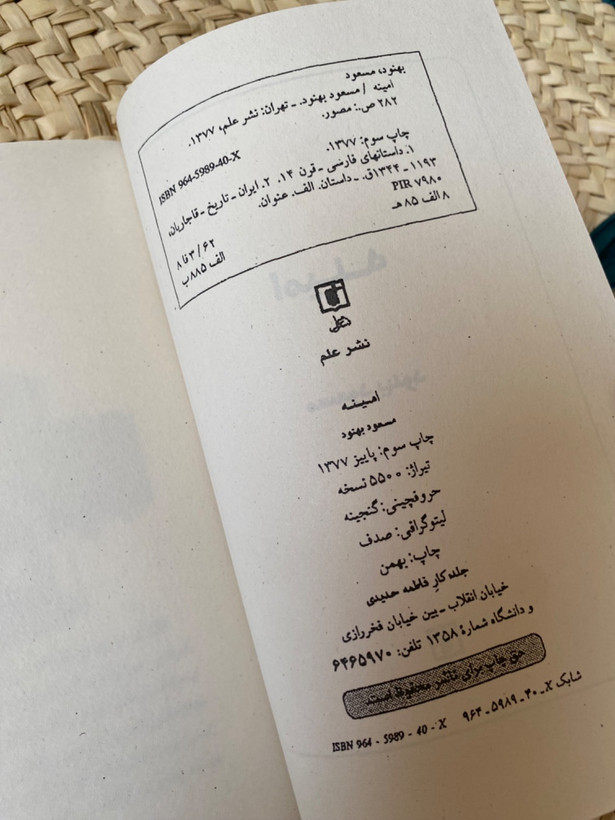 بهنود، مسعود
امینه / مسعود بهنود. ـ تهران: نشر علم، ۱۳۷۷.
۲۸۲ ص.: مصور.
ISBN 964-5989-40-X
چاپ سوم: ۱۳۷۷.
۱. داستانهای فارسی ـ قرن ۱۴. ۲. ایران ـ تاریخ ـ قاجاریان،
۱۱۹۳ ـ ۱۳۴۴ق. ـ داستان. الف. عنوان.
PIR ۷۹۸۰
۸ الف ۸۵ هـ
۶۲ / ۳ فا ۸
الف ۸۸۵ ب
علم
نشر علم
امینه
مسعود بهنود
چاپ سوم: پاییز ۱۳۷۷
تیراژ: ۵۵۰۰ نسخه
حروفچینی: گنجینه
لیتوگرافی: صدف
چاپ: بهمن
جلد کار فاطمه حدیدی
خیابان انقلاب ـ بین خیابان فخررازی
و دانشگاه شمارهٔ ۱۳۵۸ تلفن: ۶۴۶۵۹۷۰
حق چاپ برای ناشر محفوظ است.
شابک X ـ ۴۰ ـ ۵۹۸۹ ـ ۹۶۴ ISBN 964 - 5989 - 40 - X